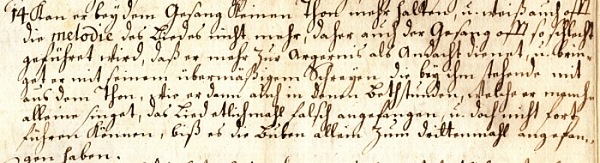 14 Kan er bey dem Gesang keinen Thon mehr halten, u. weiß auch offt
die melodie des Liedes nicht mehr, daher auch der Gesang offt so schlecht
geführet wird, daß er mehr zur Ärgernis als Andacht dienet, u. brin-
get er mit seinem übermäßigem Schreyen die bey ihm stehende mit
aus dem Thon, wie er dann auch in denen Bethstunden, welche er manch-
alleine singet, das Lied etlichmahl falsch angefangen, u. doch nicht fort
führen können, biß es die Buben allein zum drittenmahl angefan-
gen haben.